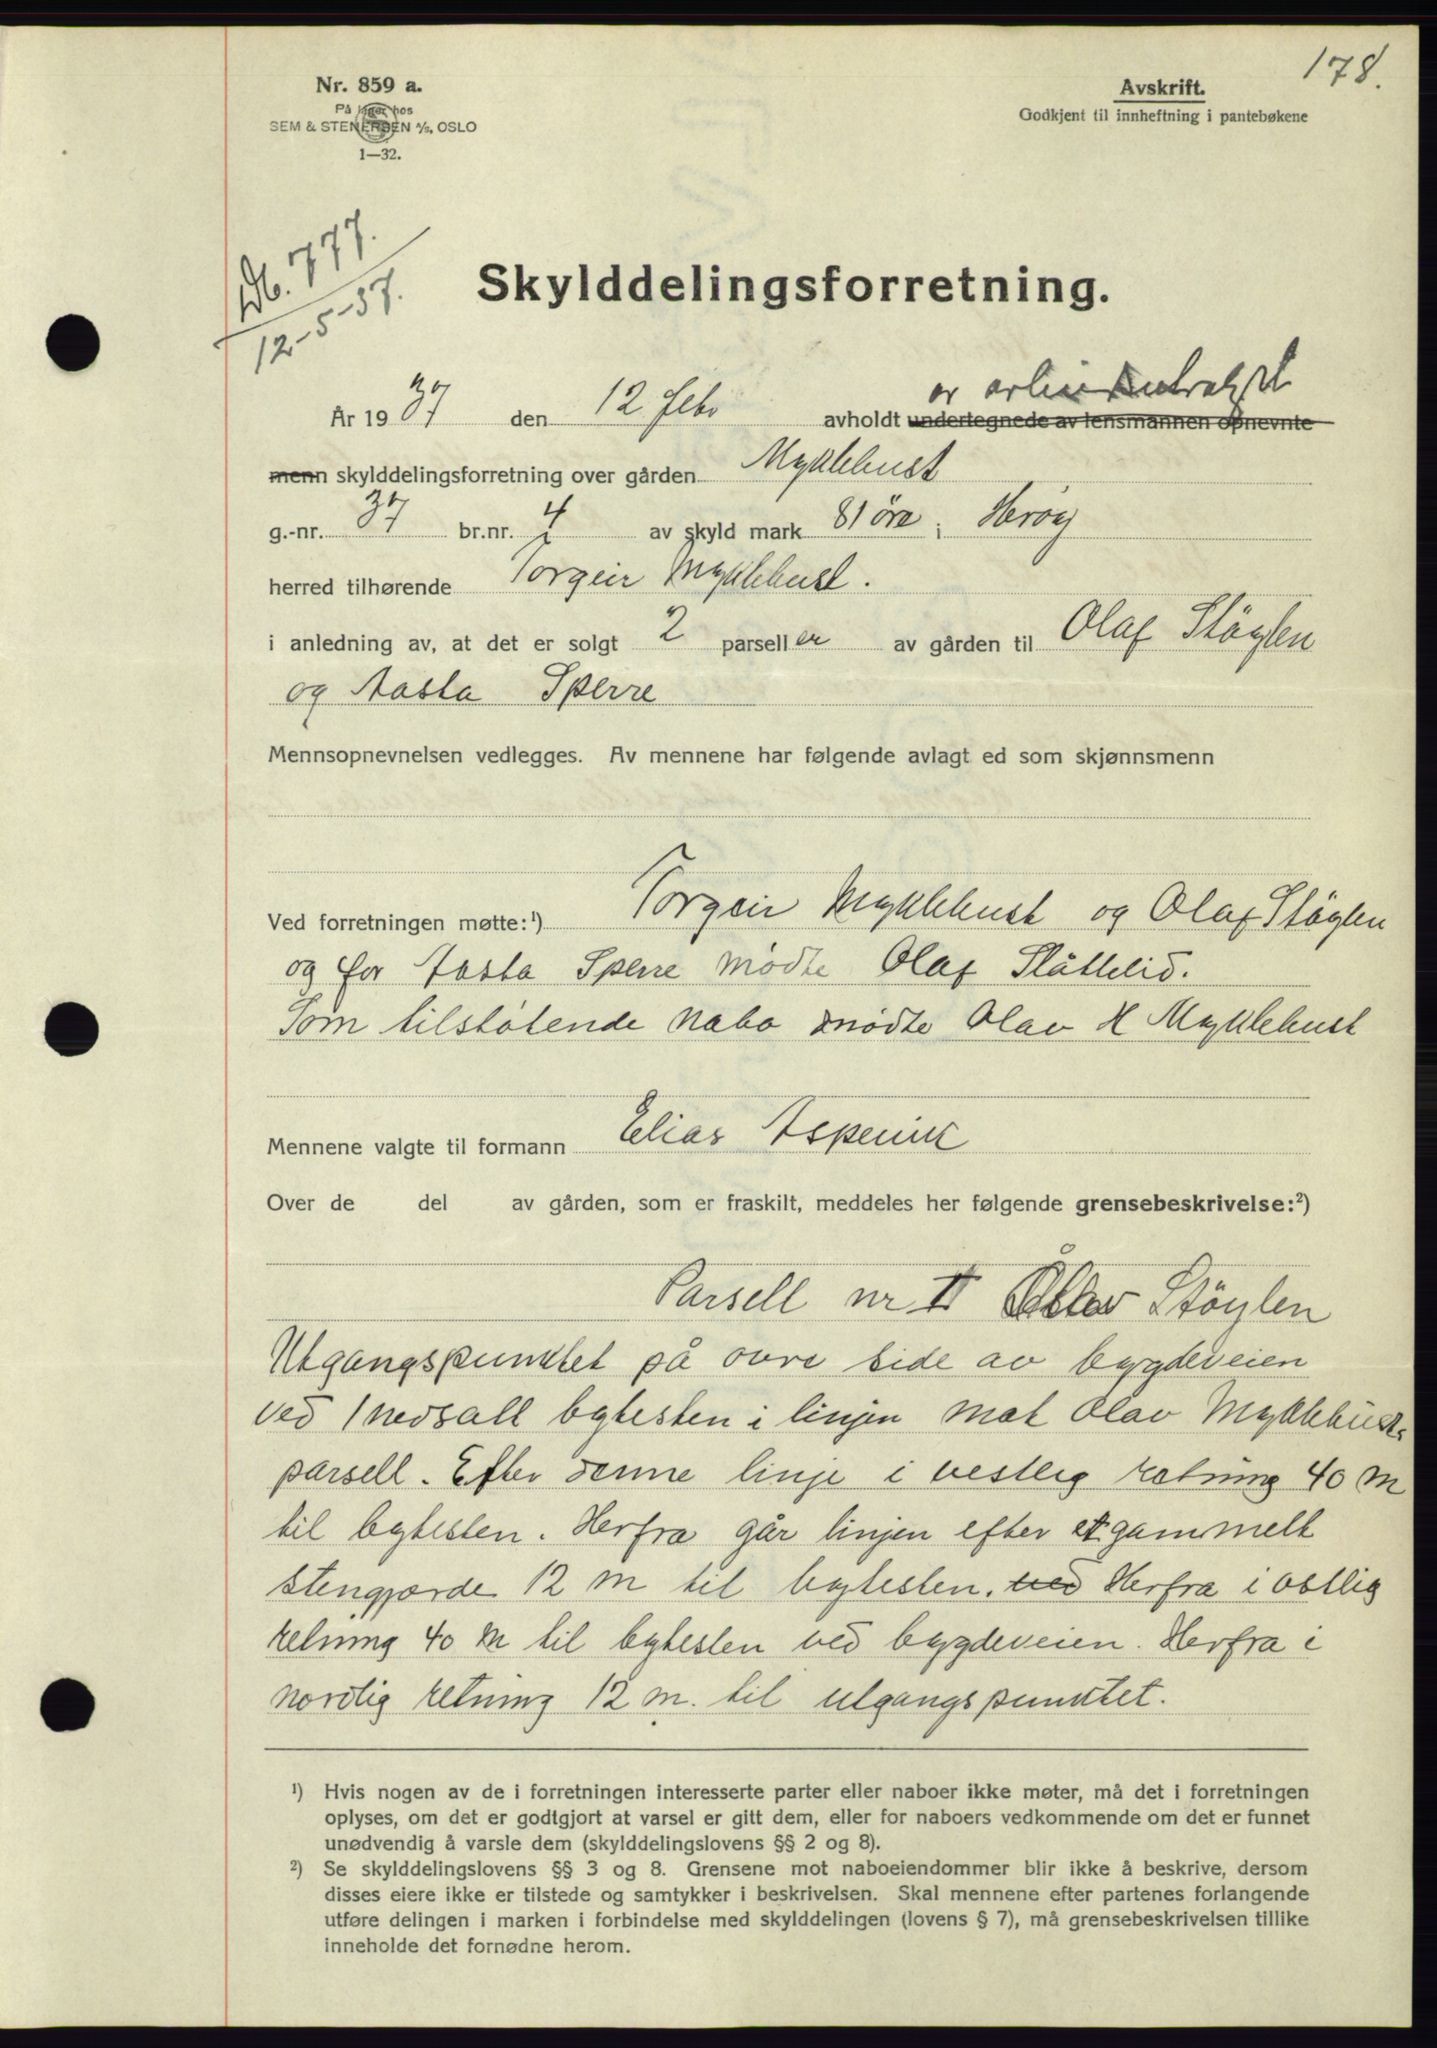 178.
Nr. 859 a.
På lager hos
SEM & STENERSEN A/S, OSLO
1—32.
Avskrift.
Godkjent til innheftning i pantebøkene
Db. 777.
12-5-37.
Skylddelingsforretning.
av
År 1937 den 12 febr avholdt undertegnede av lensmannen opnevnte
menn skylddelingsforretning over gården Myklebust
g.-nr. 37 br.nr. 4 av skyld mark 81 öre i Heröy
herred tilhørende Torgeir Myklebust.
i anledning av, at det er solgt 2 parseller av gården til Olaf Stöylen
og Aasta Sperre
Mennsopnevnelsen vedlegges. Av mennene har følgende avlagt ed som skjønnsmenn
Ved forretningen møtte:¹) Torgeir Myklebust og Olaf Stöylen
og for Aasta Sperre mødte Olaf Slåttelid.
Som tilstøtende nabo mødte Olav H Myklebust
Mennene valgte til formann Elias Aspevik
Over de del av gården, som er fraskilt, meddeles her følgende grensebeskrivelse:²)
Parsell nr Stöylen
Utgangspunktet på øvre side av bygdeveien
ved 1 nedsatt bytesten i linjen mot Olav Myklebusts
parsell. Efter denne linje i vestlig retning 40 m
til bytesten. Herfra går linjen efter et gammelt
stengjærde 12 m til bytesten. ved Herfra i østlig
retning 40 m til bytesten ved bygdeveien. Herfra i
nordlig retning 12 m. til utgangspunktet.
¹) Hvis nogen av de i forretningen interesserte parter eller naboer ikke møter, må det i forretningen
oplyses, om det er godtgjort at varsel er gitt dem, eller for naboers vedkommende om det er funnet
unødvendig å varsle dem (skylddelingslovens §§ 2 og 8).
²) Se skylddelingslovens §§ 3 og 8. Grensene mot naboeiendommer blir ikke å beskrive, dersom
disses eiere ikke er tilstede og samtykker i beskrivelsen. Skal mennene efter partenes forlangende
utføre delingen i marken i forbindelse med skylddelingen (lovens § 7), må grensebeskrivelsen tillike
inneholde det fornødne herom.